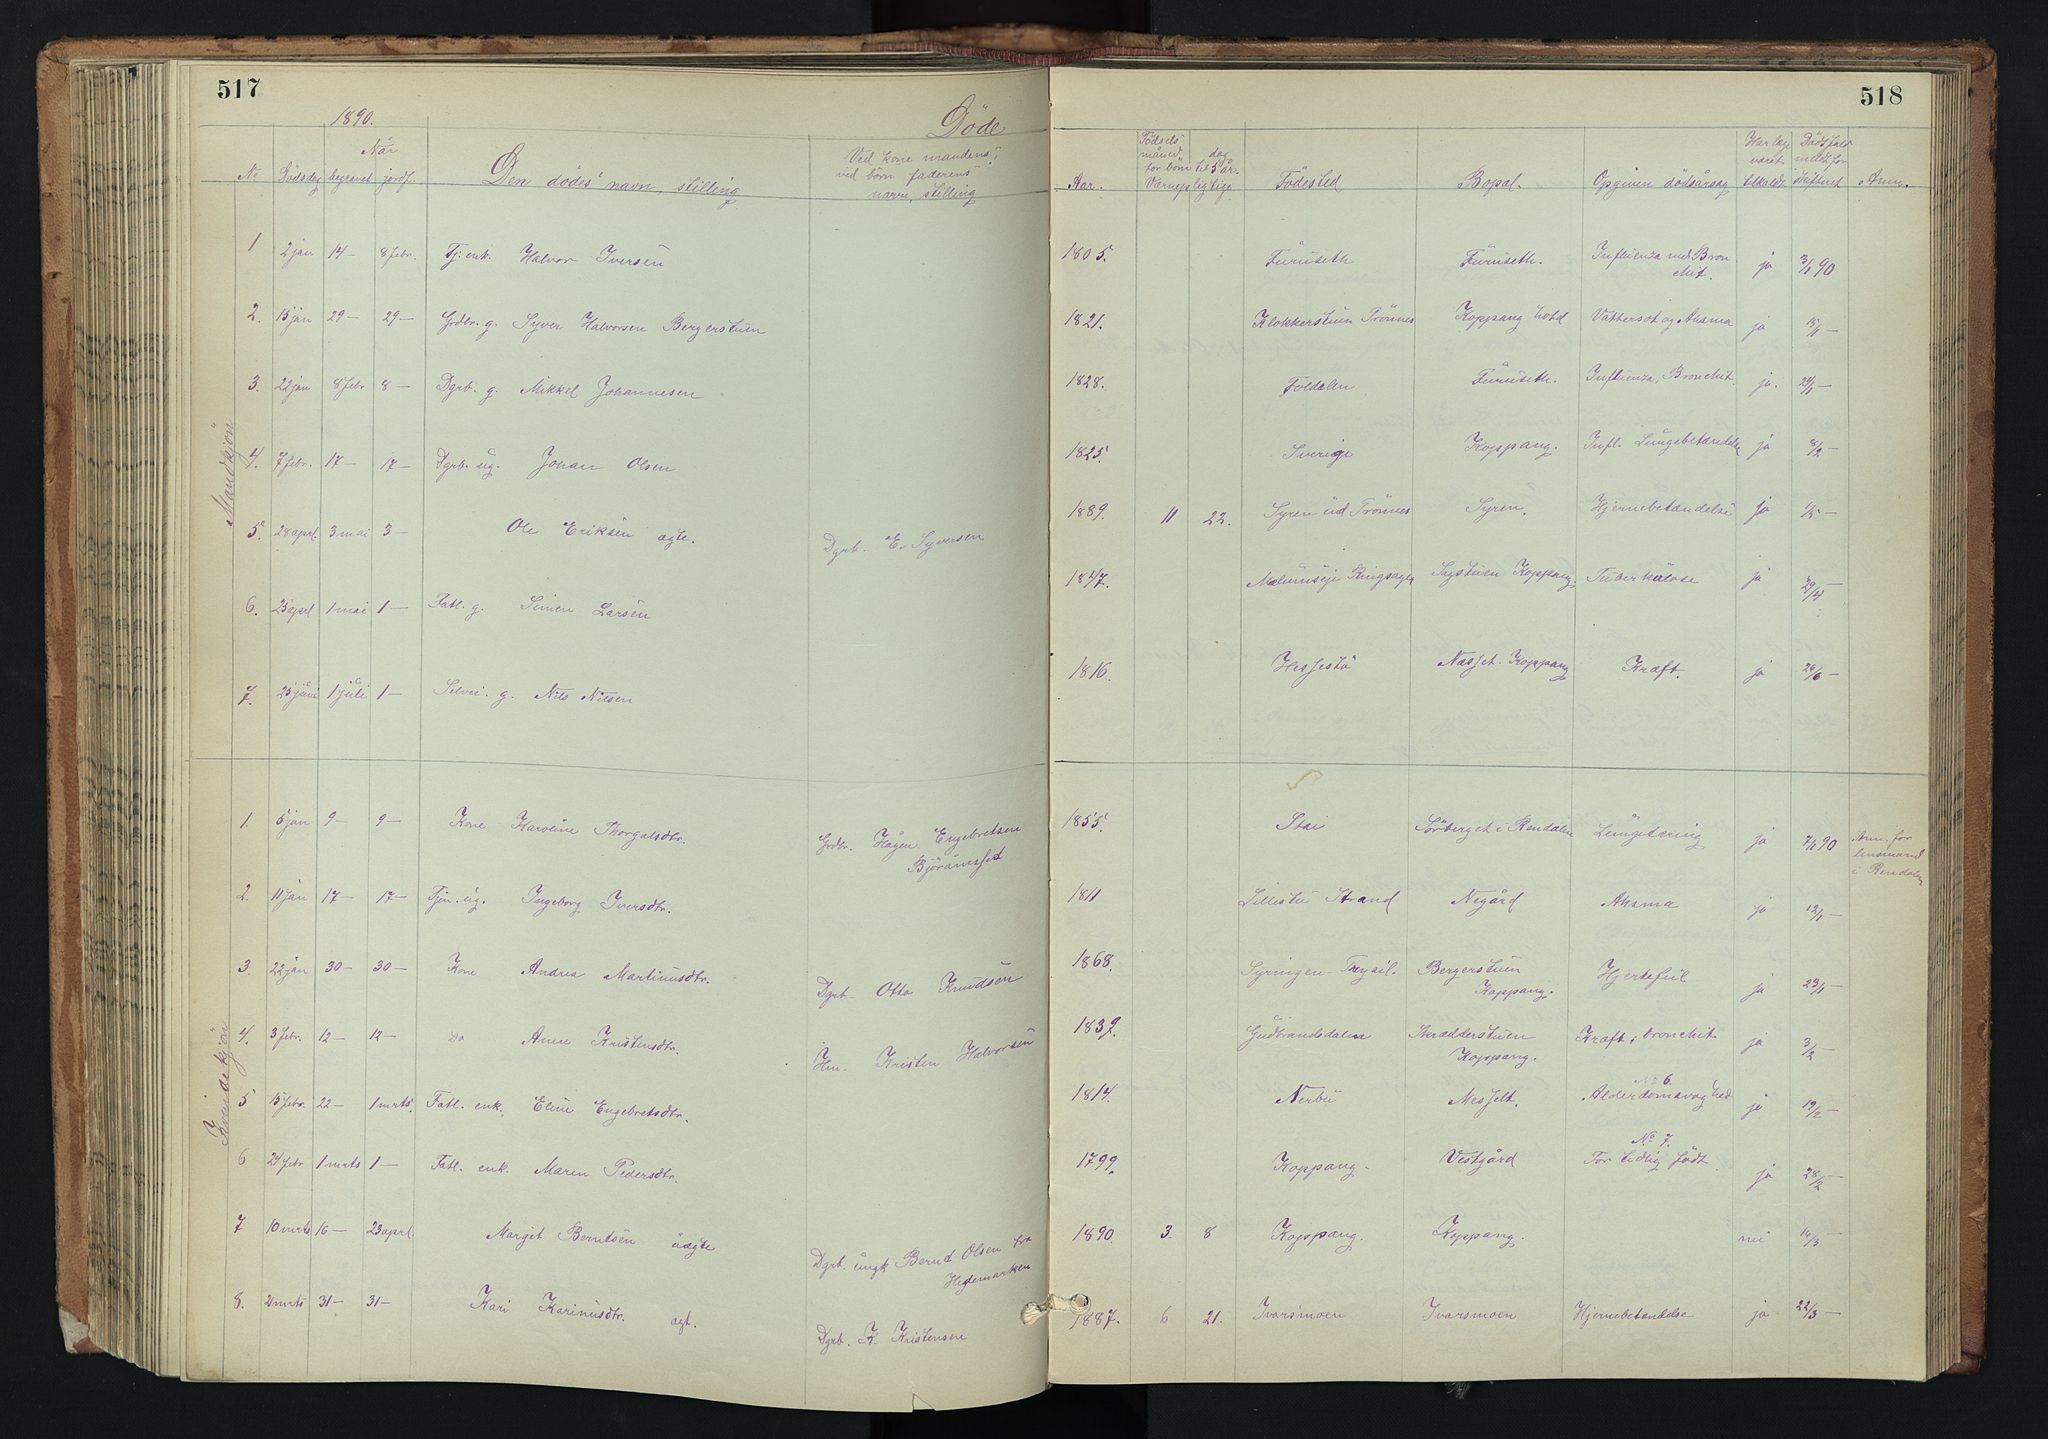 517
518
1890.
Döde
Når
No Dödsdag begravet jordf. Den dödes navn, stilling
Ved kone mandens,
ved börn faderens
navn, stilling
Aar.
Födsels-
måned dag
for börn til 5 år.
Værnepligtige
Födested Bopæl. Opgiven dödsårsag
Har læge
været
tilkaldt
Dödsfald
meldt for
skifteret
Anm.
Mandkjön
1 2 jan 14 — 8 febr. Fj. enk. Halvor Iversen 1805. Furuseth Furuseth. Influenza med Bron
chit. ja 3/1 90
2. 15 jan 29 — 29 — Grdbr. g. Syver Halvorsen Bergerstuen 1821. Klokkerstuen Trönnes Koppang hotel Vattersot og Ahsma ja 15/1 —
3. 22 jan 8 febr 8 — Dgrb. g. Mikkel Johannesen 1828. Foldalen Furuseth. Influenza, Bronchit ja. 24/1 —
4. 7 febr. 17 — 17 — Dgrb. ug. Johan Olsen 1825. Sverige Koppang. Infl. Lungebetændelse ja 8/2 —
5. 28 aprl. 3 mai 3 — Ole Eriksen ægte. Dgrb. E. Syversen 1889. 11 22. Syren ud Trönnes Syren. Hjernebetændelse ja 1/5 —
6. 25 aprl 1 mai 1 — Fatl. g. Simen Larsen 1847. Nælumseje Ringsager Sagstuen Koppang. Tuberkulose ja 29/4 —
7. 25 juni 1 juli 1 — Selvei. g. Nils Nilsen 1816. Hessestö Næsset. Koppang Kræft. ja 26/6 —
Kvindekjön
1. 5 jan 9 — 9 — Kone Karoline Thorgalsdtr. Grdbr. Hågen Engebretsen
Björånesset 1855. Stai Sörberget i Rendalen Lungetæring ja 7/1 90 Anm. for
lensmand
i Rendalen
2. 11 jan 17 — 17 — Tjen. ug. Ingeborg Iversdtr. 1811 Lillestu Strand Negård Ahsma ja 12/1 —
3. 22 jan 30 — 30 — Kone Andrea Martinusdtr. Dgrb. Otto Knudsen 1868. Syringen — Trysil. Bergerstuen
Koppang. Hjertefeil ja 23/1 —
4. 3 febr. 12 — 12 — Do Anne Kristensdtr. Hm. Kristen Halvorsen 1839. Gudbrandsdalen Skrædderstuen
Koppang. Kræft, bronchit ja 3/2 —
5 15 febr. 22 — 1 mrts. Fatl. enk. Eline Engebretsdtr. 1814. Nerbu Messelt. No 6.
Alderdomssvaghed ja 19/2 —
6 24 febr 1 mrts 1 — Fatl. enk. Maren Pedersdtr. 1799. Koppang. Vestgård No 7.
For tidlig födt ja 28/2 —
7 10 mrts 16 — 23 aprl. Marget Berntsen uægte Dgrb. ungk Bernd Olsen fra
Hedemarken 1890. 3. 8 Koppang. Koppang. nei 14/3 —
8. 21 mrts 31 — 31 — Kari Karinusdtr. ægt. Dgrb. K. Kristensen 1887. 6 21. Ivarsmoen Ivarsmoen Hjernebetændelse ja 22/3 —